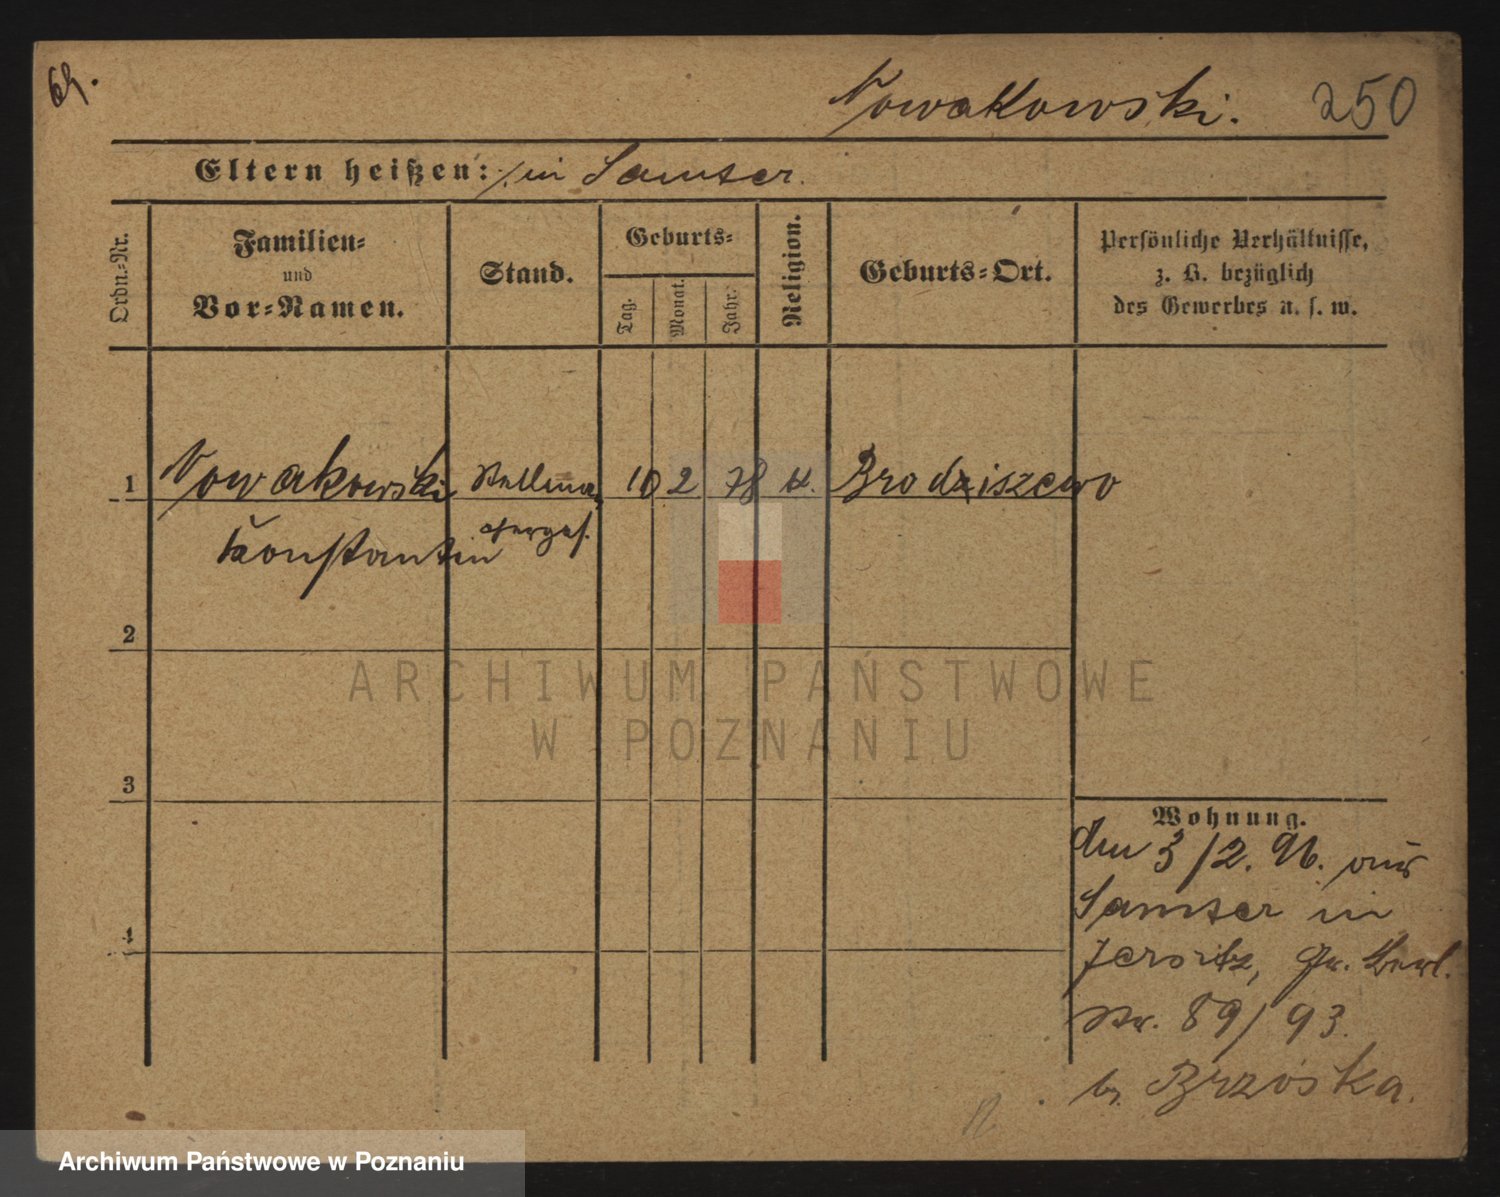 Nowakowski. 250
Eltern heißen: in Samter.
Ordn.-Nr.
Familien-
und
Vor-Namen.
Stand.
Geburts-
Tag.
Monat.
Jahr.
Religion.
Geburts-Ort.
Persönliche Verhältnisse,
z. B. bezüglich
des Gewerbes u. s. w.
1 Nowakowski Stellma- 10 2 78 k. Brodziszewo
Konstantin chergeh.
2
3
4
Wohnung.
den 3/2. 96. aus
Samter in
Jersitz, Gr. Berl.
Str. 89/93.
b. Brzoska.
ARCHIWUM PAŃSTWOWE
W POZNANIU
Archiwum Państwowe w Poznaniu